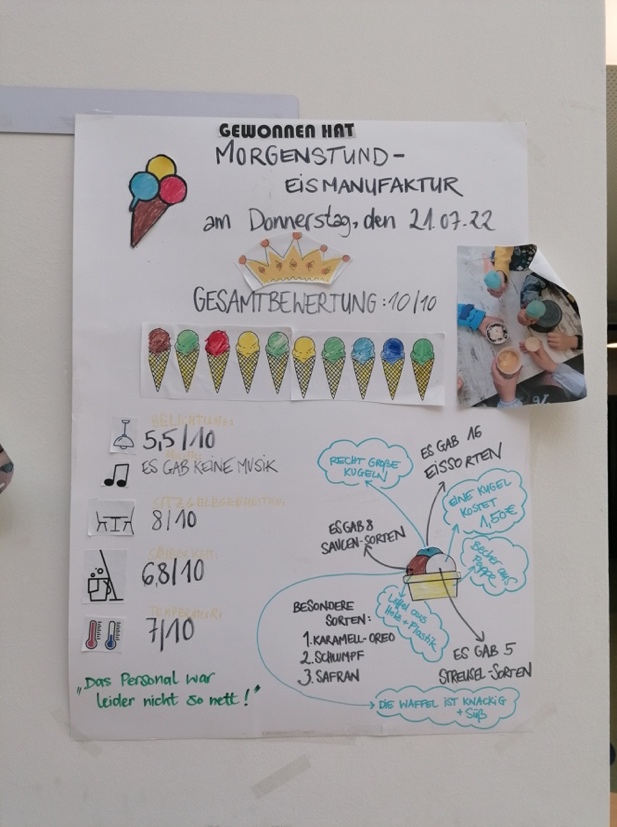 GEWONNEN HAT
MORGENSTUND-
EISMANUFAKTUR
am Donnerstag, den 21.07.22
GESAMTBEWERTUNG: 10/10
BELICHTUNG:
5,5/10
ES GAB KEINE MUSIK
SITZGELEGENHEITEN
8/10
6,8/10
TEMPERATUR:
7/10
„Das Personal war
leider nicht so nett!"
RECHT GROßE
KUGELN
ES GAB 16
EISSORTEN
EINE KUGEL
KOSTET
1,50€
ES GAB 8
SAUCEN-SORTEN
Becher aus
Pappe
Löffel aus
Holz + Plastik
BESONDERE
SORTEN:
1. KARAMELL-OREO
2. SCHLUMPF
3. SAFRAN
ES GAB 5
STREUSEL-SORTEN
DIE WAFFEL IST KNACKIG
+ Süß